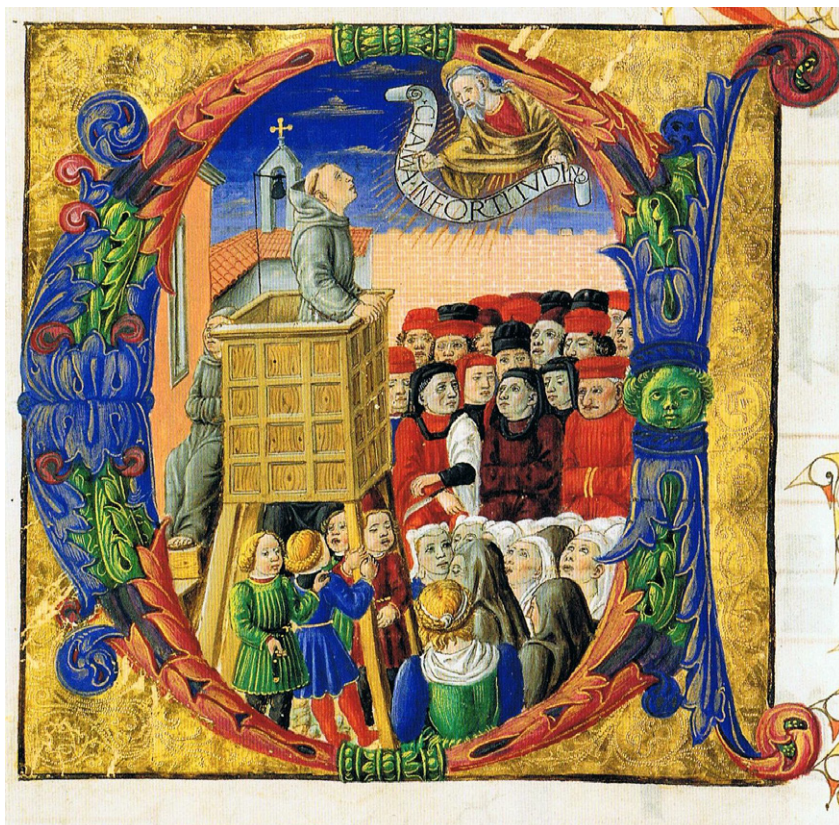 CLAMA·INFORTITVDINE